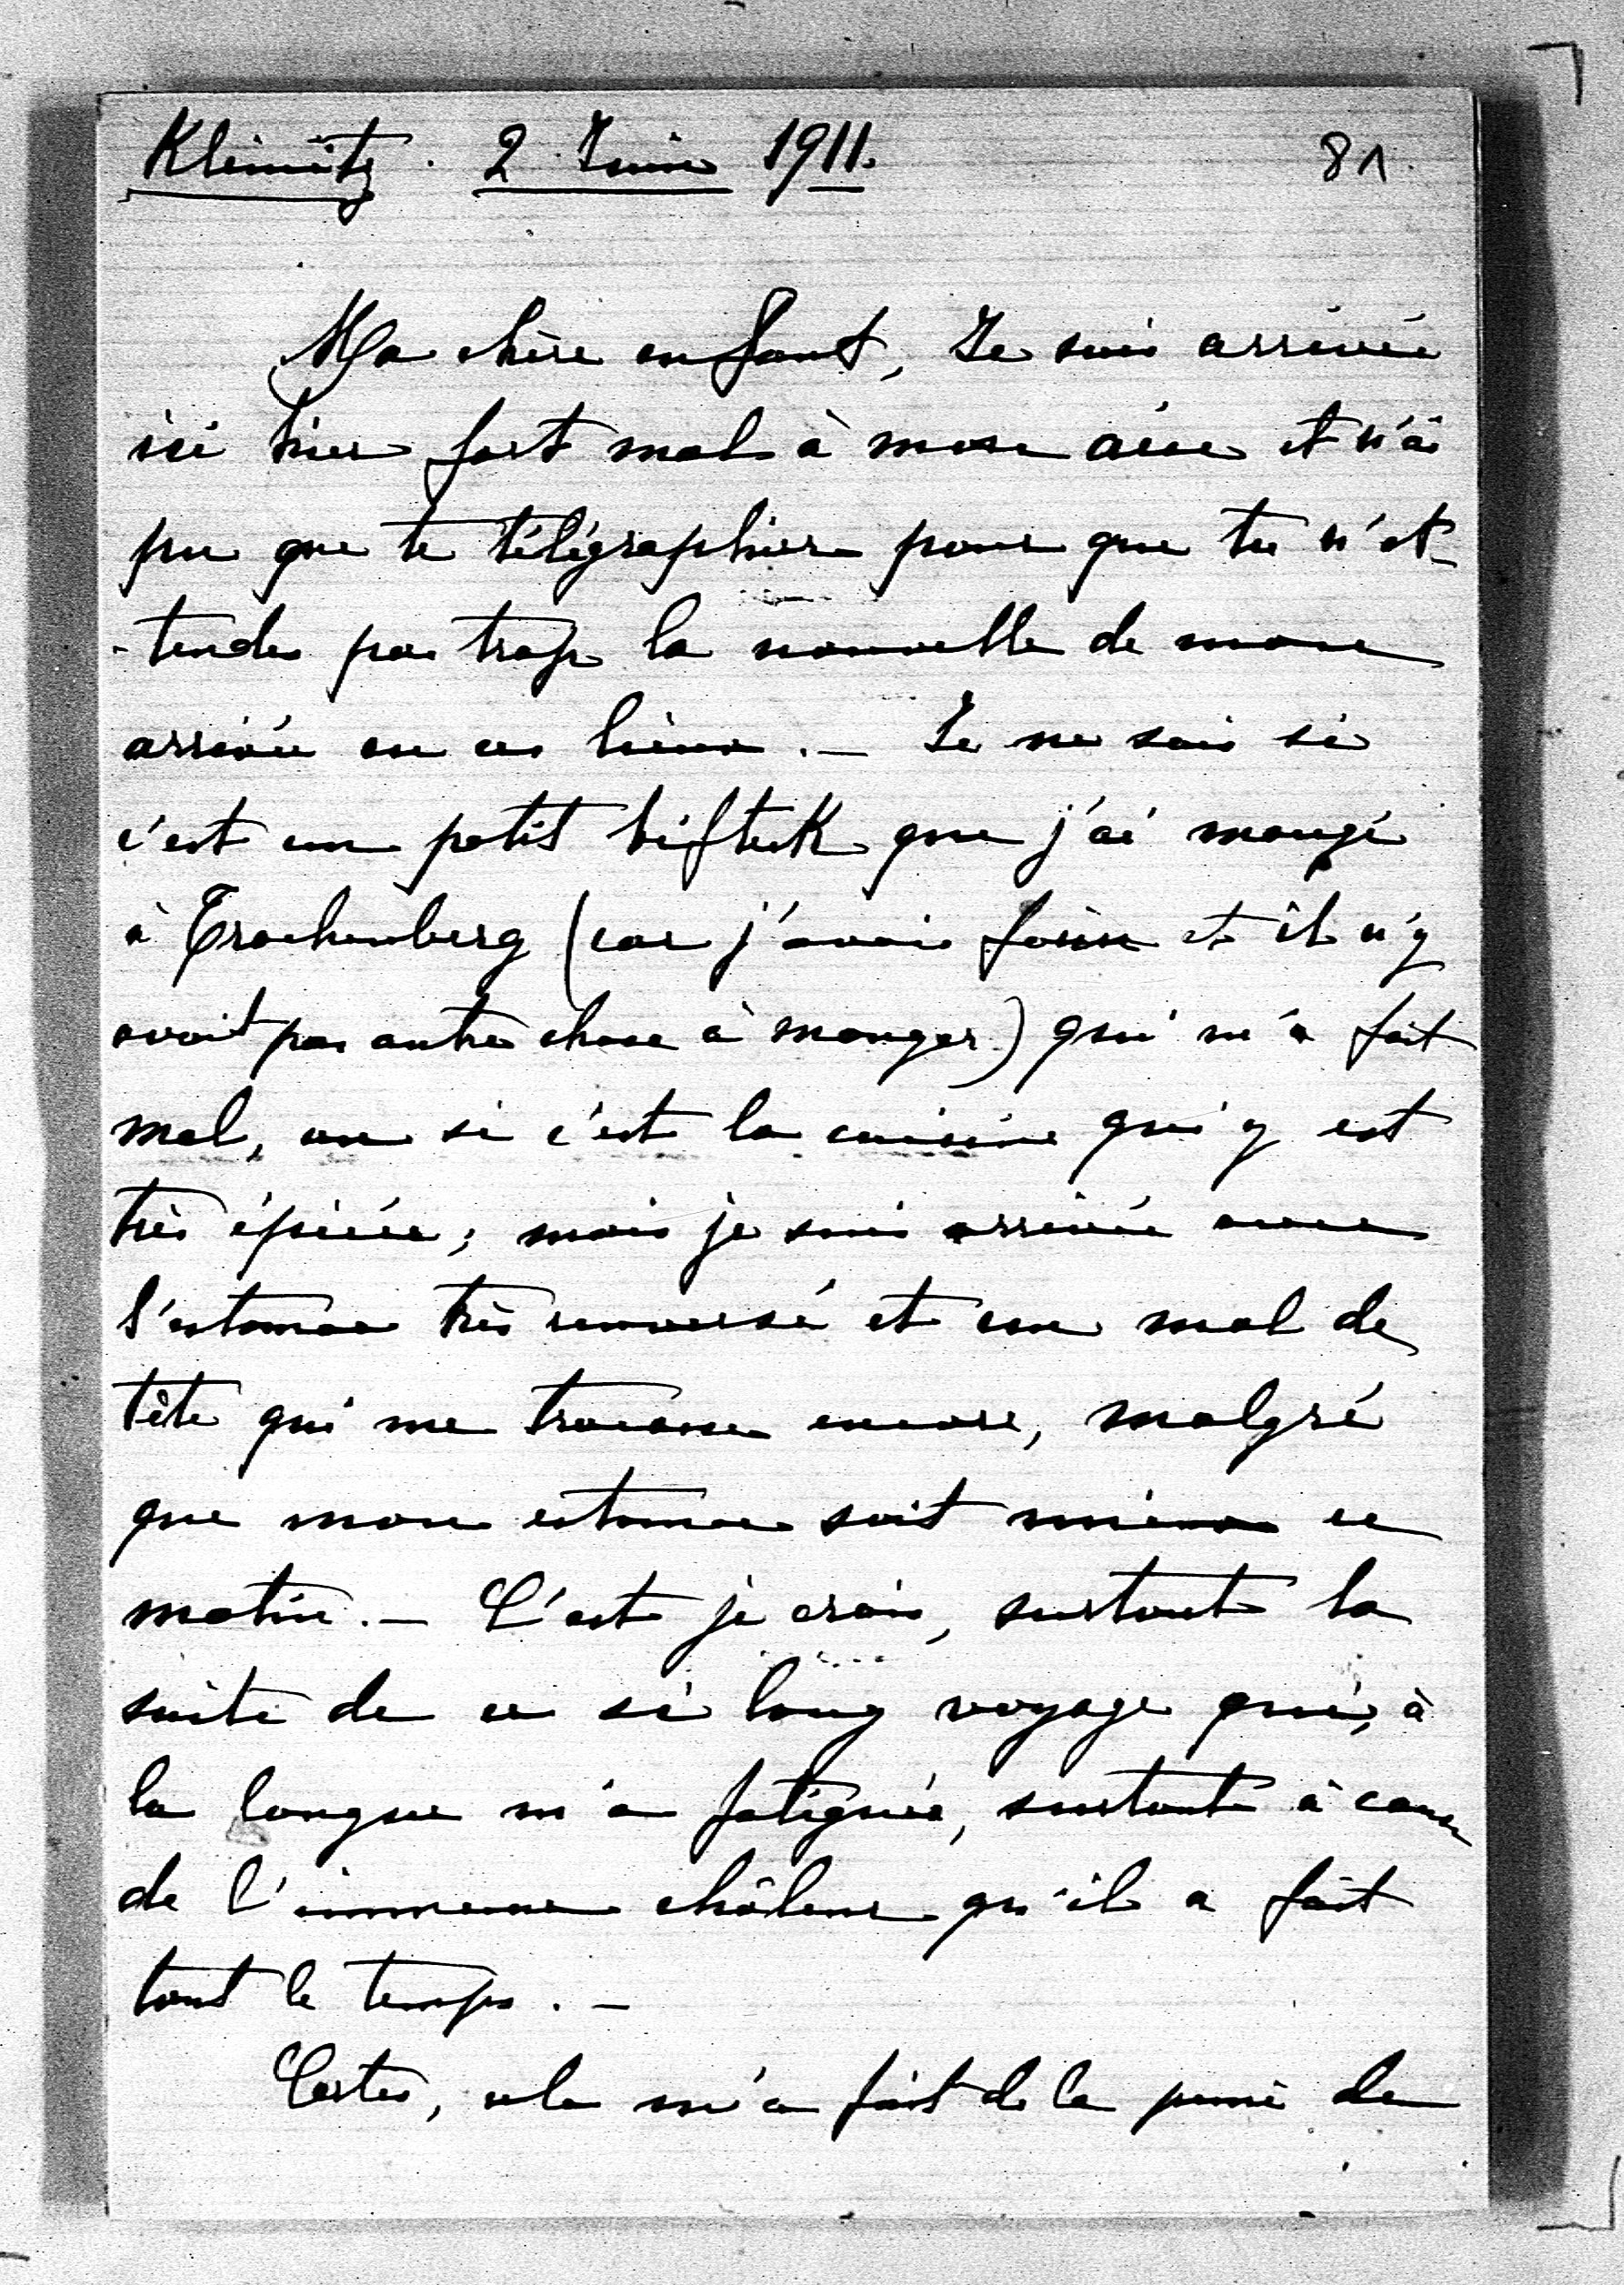 Klemitz. 2 Juin 1911.
81.
Ma chère enfant, Je suis arrivée
ici hier fort mal à mon aise et n'ai
pu que te télégraphier pour que tu n'at-
-tendes pas trop la nouvelle de mon
arrivée en ces lieux. — Je ne sais si
c'est un petit bifteck que j'ai mangé
à Trachenberg (car j'avais faim et il n'y
avait pas autre chose à manger) qui m'a fait
mal, ou si c'est la cuisine qui y est
très épicée; mais je suis arrivée avec
l'estomac très renversé et un mal de
tête qui me tracasse encore, malgré
que mon estomac soit mieux ce
matin. — C'est je crois, surtout la
suite de ce si long voyage qui, à
la longue m'a fatiguée, surtout à cause
de l'immense châleur qu'il a fait
tout le temps. —
Certes, cela m'a fait de la peine de